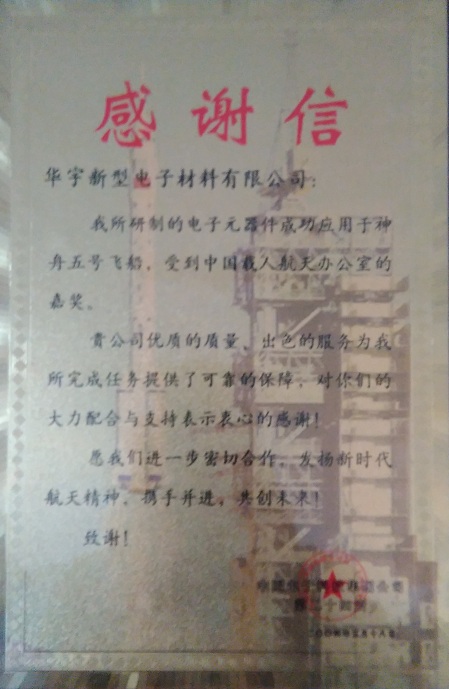 感谢信
华宇新型电子材料有限公司：
我所研制的电子元器件成功应用于神
舟五号飞船，受到中国载人航天办公室的
嘉奖。
贵公司优质的质量、出色的服务为我
所完成任务提供了可靠的保障，对你们的
大力配合与支持表示衷心的感谢！
愿我们进一步密切合作，发扬新时代
航天精神，携手并进，共创未来！
致谢！